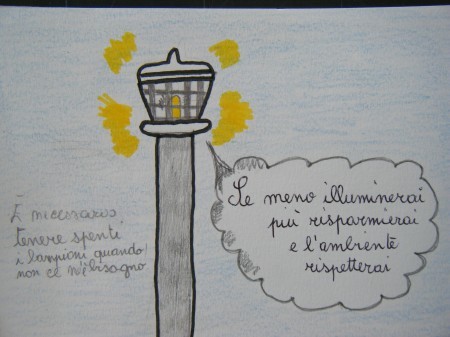 È necessario,
tenere spenti
i lampioni quando
non ce n'è bisogno
Se meno illuminerai
più risparmierai
e l'ambiente
rispetterai